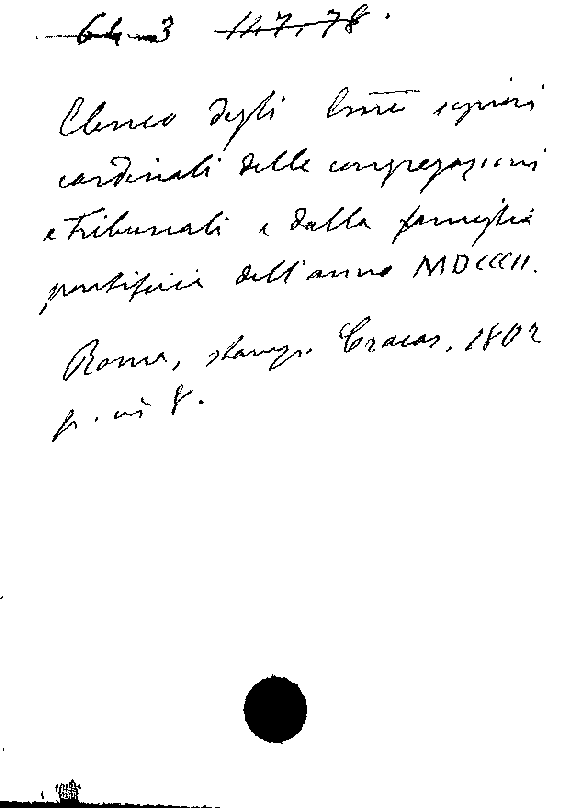 64 3 147.78.
Elenco degli Emi signori
cardinali delle congregazioni
e tribunali e dalla famiglia
pontificia dell'anno MDCCCII.
Roma, stamp. Cracas, 1802
p. in 8.